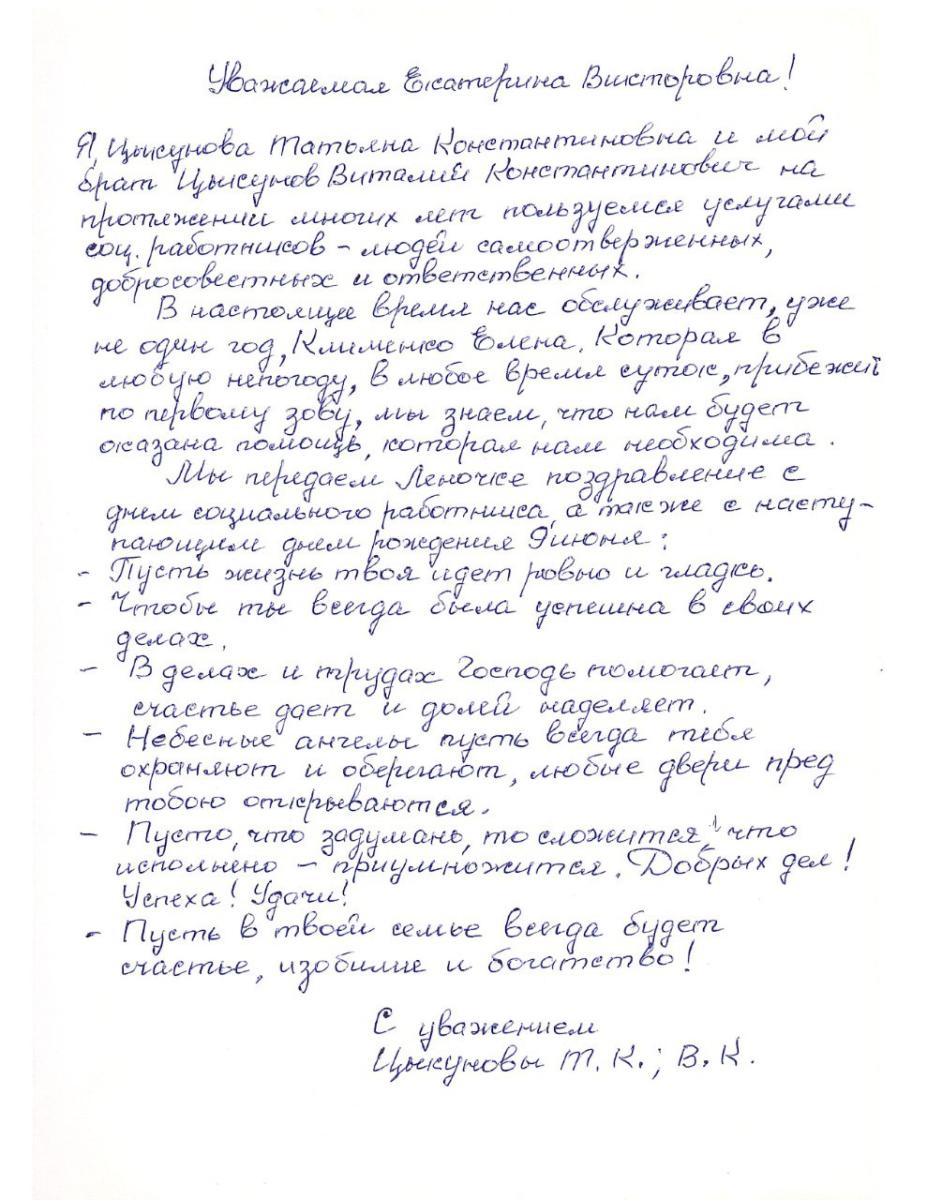 Уважаемая Екатерина Викторовна!
Я, Цыкунова Татьяна Константиновна и мой
брат Цыкунов Виталий Константинович на
протяжении многих лет пользуемся услугами
соц. работников – людей самоотверженных,
добросовестных и ответственных.
В настоящее время нас обслуживает, уже
не один год, Клименко Елена. Которая в
любую непогоду, в любое время суток, прибежит
по первому зову, мы знаем, что нам будет
оказана помощь, которая нам необходима.
Мы передаем Леночке поздравление с
днем социального работника, а также с насту-
пающим днем рождения 9 июня:
- Пусть жизнь твоя идет ровно и гладко.
- Чтобы ты всегда была успешна в своих
делах.
- В делах и трудах Господь помогает,
счастье дает и долей наделяет.
- Небесные ангелы пусть всегда тебя
охраняют и оберегают, любые двери пред
тобою открываются.
- Пусто, что задумано, то сложится, что
исполнено – приумножится. Добрых дел!
Успеха! Удачи!
- Пусть в твоей семье всегда будет
счастье, изобилие и богатство!
С уважением
Цыкуновы Т. К.; В. К.